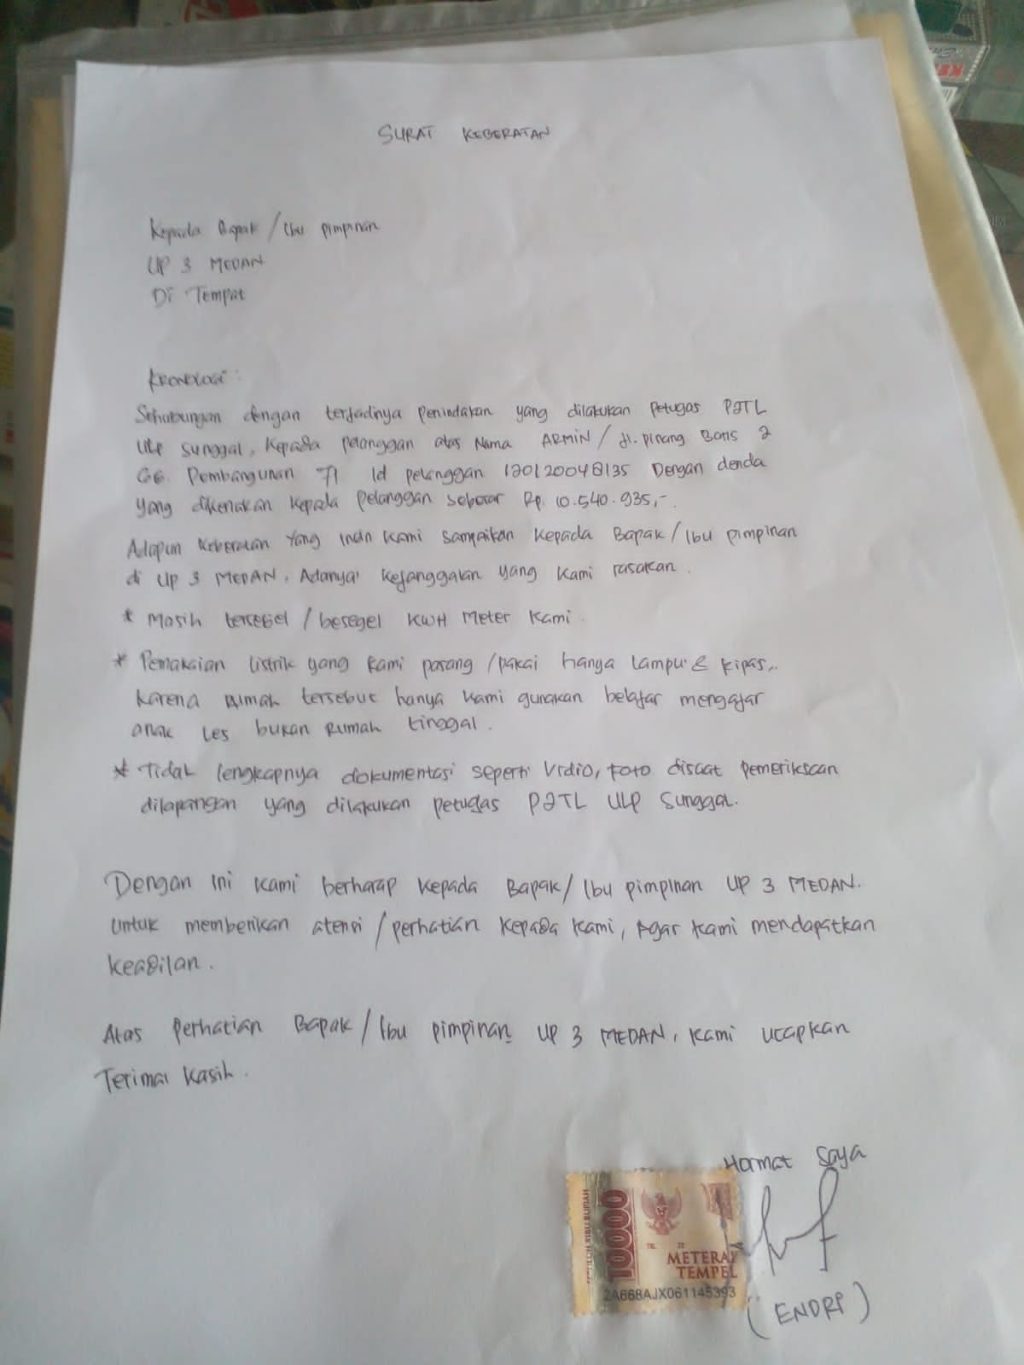 SURAT KEBERATAN
Kepada Bapak / Ibu pimpinan
UP 3 MEDAN
Di Tempat
KRONOLOGI :
Sehubungan dengan terjadinya penindakan yang dilakukan petugas P2TL
ULP Sunggal, Kepada pelanggan atas Nama ARMIN / Jl. pinang Baris 2
GG. Pembangunan 71 Id pelanggan 120120048135 Dengan denda
yang dikenakan Kepada pelanggan sebesar Rp. 10.540.935,-
Adapun Keberatan yang ingin kami sampaikan Kepada Bapak / Ibu pimpinan
di UP 3 MEDAN. Adanya kejanggalan yang kami rasakan.
* Masih tersegel / besegel KWH Meter Kami.
* Pemakaian listrik yang kami pasang / pakai hanya lampu & kipas..
karena rumah tersebut hanya kami gunakan belajar mengajar
anak les bukan Rumah tinggal.
* Tidak lengkapnya dokumentasi seperti Vidio, foto disaat pemeriksaan
dilapangan yang dilakukan petugas P2TL ULP Sunggal.
Dengan ini kami berharap Kepada Bapak / Ibu pimpinan UP 3 MEDAN.
Untuk memberikan atensi / perhatian Kepada Kami, Agar kami mendapatkan
keadilan.
Atas Perhatian Bapak / Ibu pimpinan UP 3 MEDAN, kami ucapkan
Terima Kasih.
Hormat Saya
10000
METERAI
TEMPEL
2A668AJX061145393
(ENDRI)